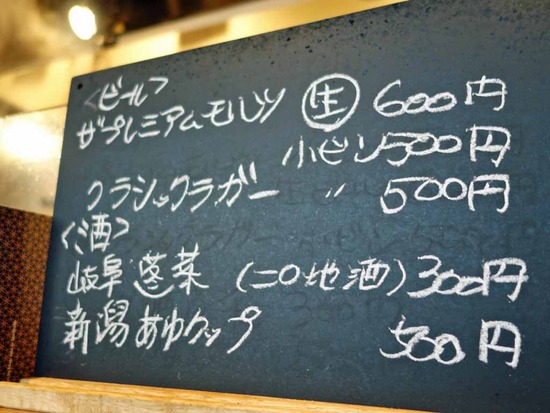 <ビール>
ザプレミアムモルツ 生 600円
小ビン 500円
クラシックラガー 〃 500円
<酒>
岐阜 蓬莱 (二〇地酒) 300円
新潟 あゆカップ 500円